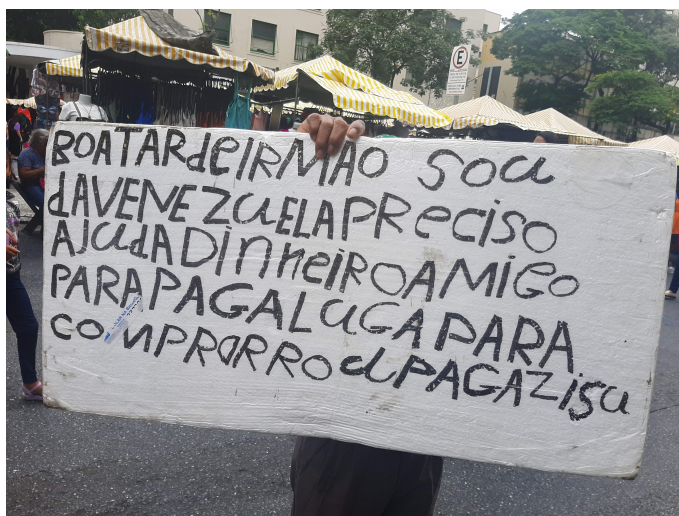 BOATARdeIRMÃO sou
dAVENEZuELAPReciso
AJudADinheiROAMIGO
PARAPAGALuGAPARA
COMPRARROuPAGAZisu
E